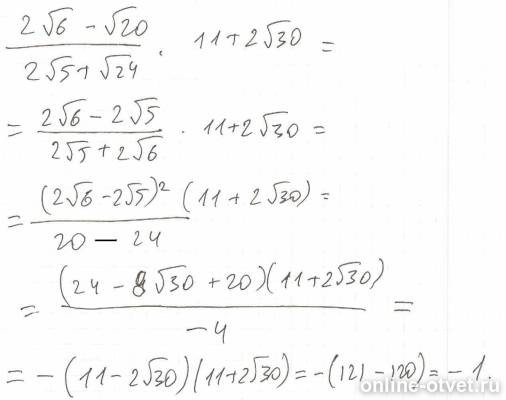 (2√6 - √20)/(2√5 + √24) · 11 + 2√30 =
= (2√6 - 2√5)/(2√5 + 2√6) · 11 + 2√30 =
= (2√6 - 2√5)² (11 + 2√30)/(20 - 24) =
= (24 - 8√30 + 20)(11 + 2√30)/(-4) =
= -(11 - 2√30)(11 + 2√30) = -(121 - 120) = -1.
online-otvet.ru